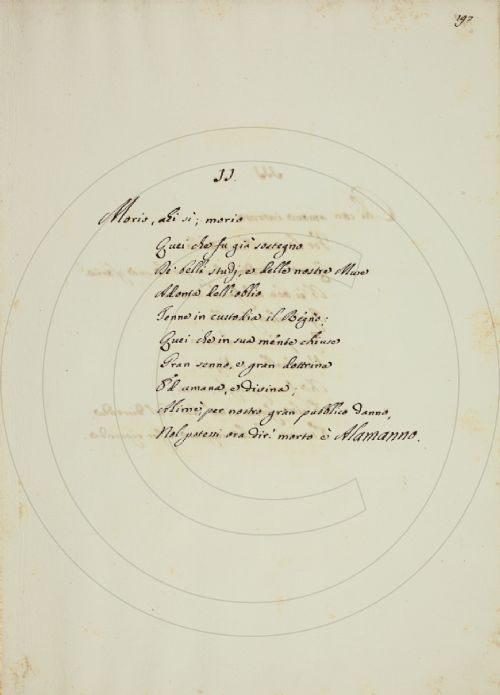 192
II.
Morio, ahi sì; morio
Quei che fu già sostegno
De' belli studj, e delle nostre Muse
Adonta dell'oblio
Tenne in custodia il Regno:
Quei che in sua mente chiuse
Gran senno, e gran dottrina
Ed umana, e divina;
Ahimè, per nostro gran pubblico danno,
Nol potessi ora dir! morto è Alamanno.